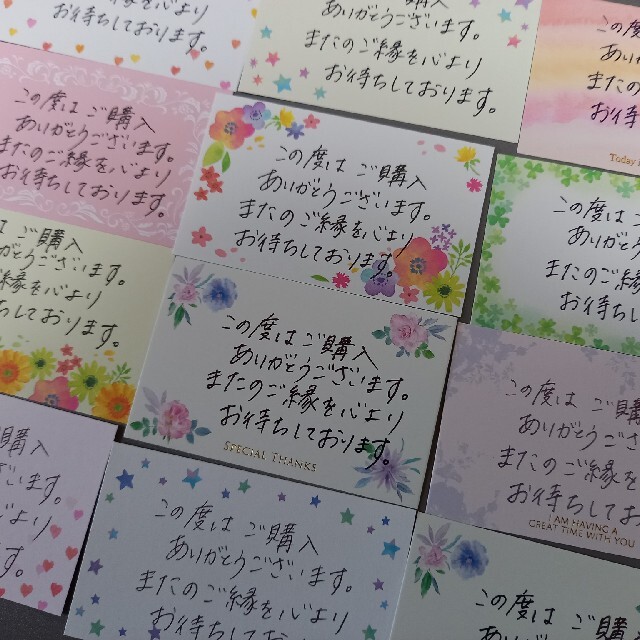 心より
お待ちしております。
ありがとうございます。
またのご縁を心より
お待ちしております。
この
ありが
またの
お待ち
Today
この度は ご購入
ありがとうございます。
またのご縁を心より
お待ちしております。
この度は ご購入
ありがとうございます。
またのご縁を心より
お待ちしております。
この度は ご
ありがとう
またのご
お待ちし
ご購入
うございます。
ご縁を心より
ております。
この度は ご購入
ありがとうございます。
またのご縁を心より
お待ちしております。
SPECIAL THANKS
この度は ご購
ありがとうござ
またのご縁を
お待ちしてお
I AM HAVING A
GREAT TIME WITH YOU
購入
います。
より
す。
この度は ご購入
ありがとうございます。
またのご縁を心より
お待ちしております。
この度は ご購
ありがとう